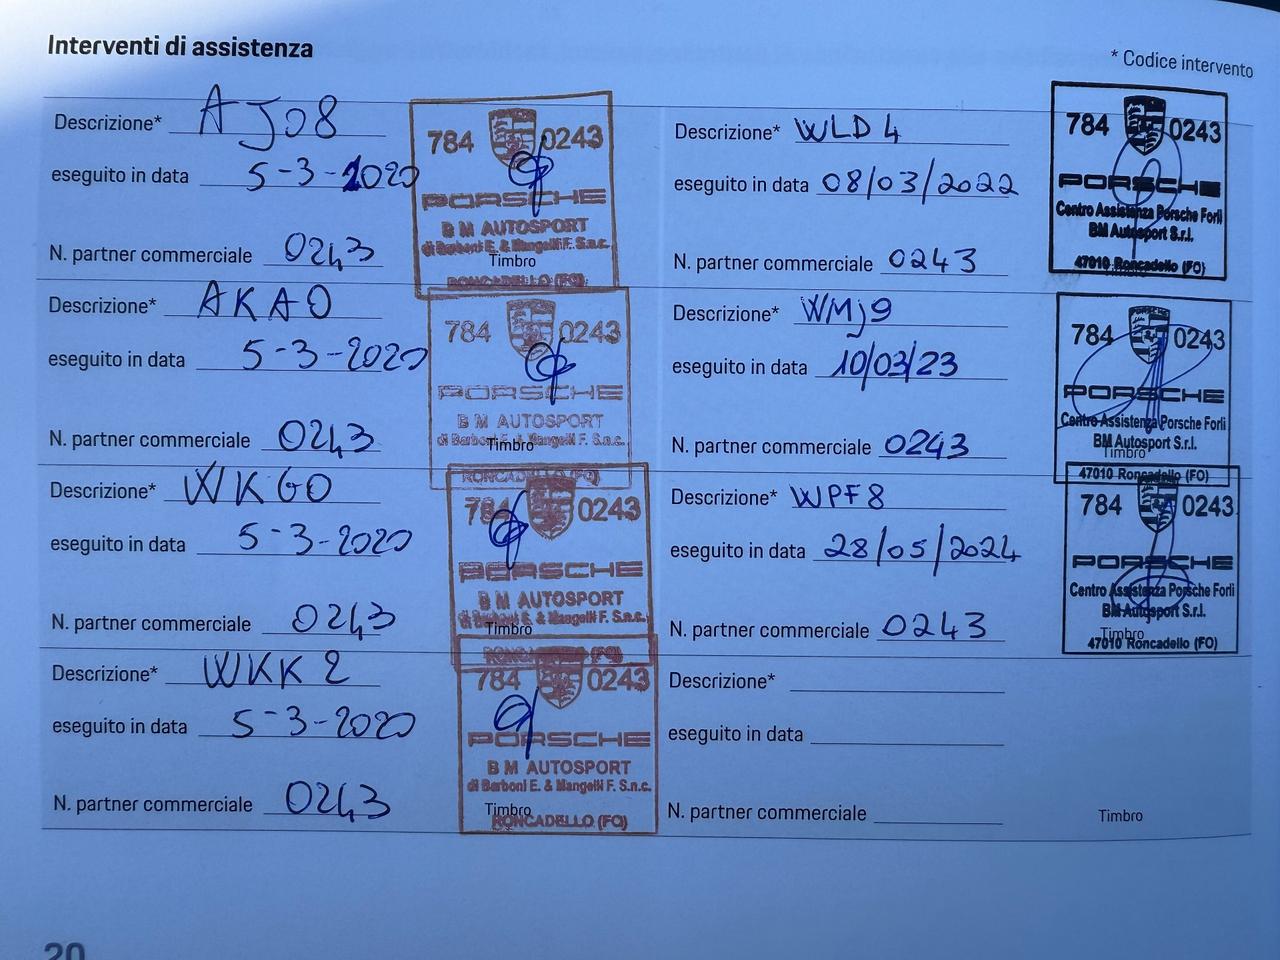 Interventi di assistenza
* Codice intervento
Descrizione* AJ08
eseguito in data 5-3-2020
N. partner commerciale 0243
784 0243
PORSCHE
B M AUTOSPORT
di Barboni E. & Mangelli F. S.n.c.
Timbro
RONCADELLO (FO)
Descrizione* AKA0
eseguito in data 5-3-2020
N. partner commerciale 0243
784 0243
PORSCHE
B M AUTOSPORT
di Barboni E. & Mangelli F. S.n.c.
Timbro
RONCADELLO (FO)
Descrizione* WKG0
eseguito in data 5-3-2020
N. partner commerciale 0243
784 0243
PORSCHE
B M AUTOSPORT
di Barboni E. & Mangelli F. S.n.c.
Timbro
RONCADELLO (FO)
Descrizione* WKK2
eseguito in data 5-3-2020
N. partner commerciale 0243
784 0243
PORSCHE
B M AUTOSPORT
di Barboni E. & Mangelli F. S.n.c.
Timbro
RONCADELLO (FO)
Descrizione* WLD4
eseguito in data 08/03/2022
N. partner commerciale 0243
784 0243
PORSCHE
Centro Assistenza Porsche Forlì
BM Autosport S.r.l.
47010 Roncadello (FO)
Timbro
Descrizione* WMJ9
eseguito in data 10/03/23
N. partner commerciale 0243
784 0243
PORSCHE
Centro Assistenza Porsche Forlì
BM Autosport S.r.l.
Timbro
47010 Roncadello (FO)
Descrizione* WPF8
eseguito in data 28/05/2024
N. partner commerciale 0243
784 0243
PORSCHE
Centro Assistenza Porsche Forlì
BM Autosport S.r.l.
Timbro
47010 Roncadello (FO)
Descrizione*
eseguito in data
N. partner commerciale
Timbro
20